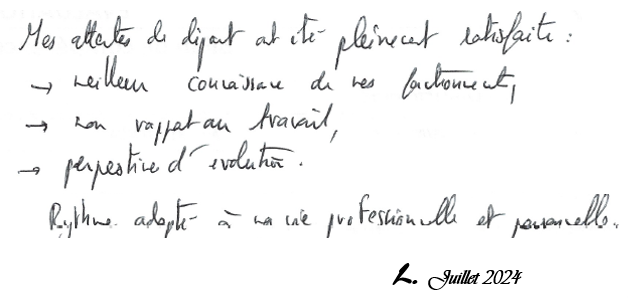 Mes attentes de départ ont été pleinement satisfaite :
→ meilleur connaissance de mes fonctionnement,
→ mon rapport au travail,
→ perpestive d'évolution.
Rythme adapté à ma vie professionnelle et personnelle.
L. Juillet 2024